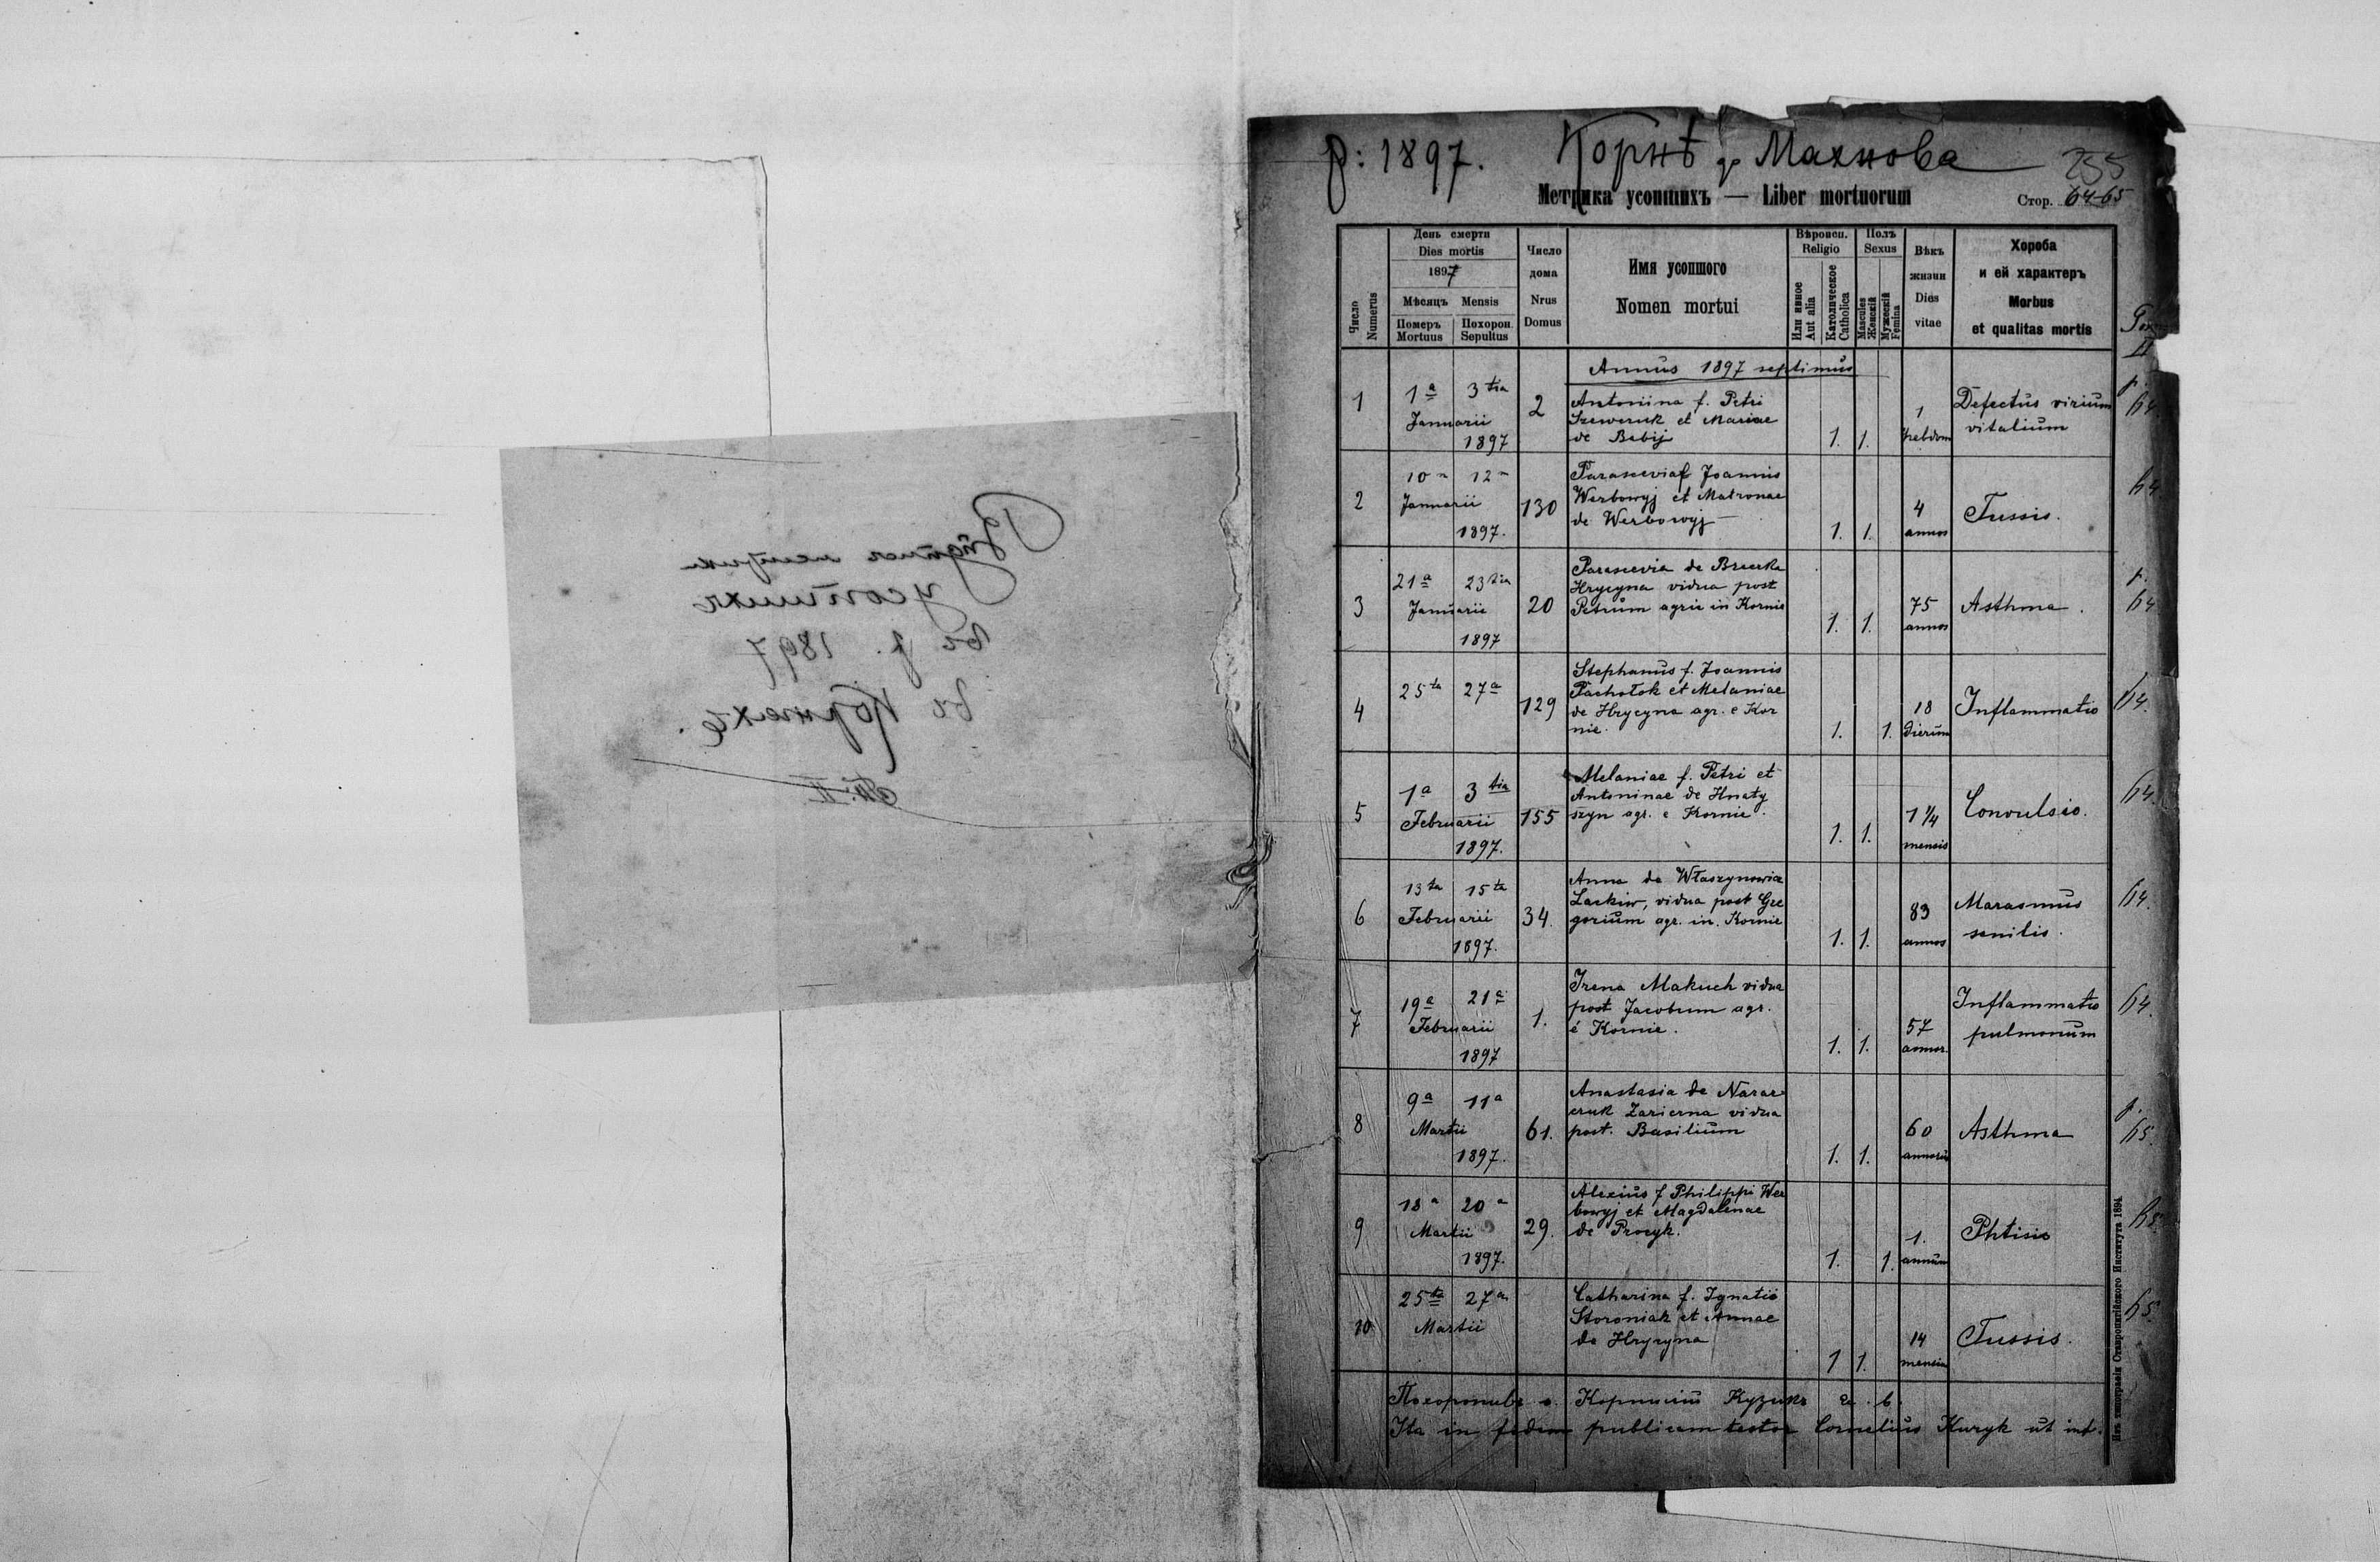 р: 1897. Корнѣ до Махнова
255
Метрика усопшихъ — Liber mortuorum
Стор. 64-65
Число
Numerus
День смерти
Dies mortis
1897
Мѣсяцъ Mensis
Померъ
Mortuus
Похорон.
Sepultus
Число
дома
Nrus
Domus
Имя усопшого
Nomen mortui
Вѣроисп.
Religio
Или ивное
Aut alia
Католическое
Catholica
Полъ
Sexus
Mascules
Женскій
Мужескій
Femina
Вѣкъ
жизни
Dies
vitae
Хороба
и ей характеръ
Morbus
et qualitas mortis
Annus 1897 septimus
1
1a 3tia
Januarii
1897
2
Antonina f. Petri
Szewcruk et Mariae
de Bebij
1. 1.
1
hebdom
Defectus virium
vitalium
p.
64.
2
10a 12a
Januarii
1897.
130
Parasceviaf Joannis
Werbowyj et Matronae
de Werbowyj
1. 1.
4
annos
Tussis.
64
3
21a 23tia
Januarii
1897
20
Parascevia de
Hrycyna vidua post
Petrum agric in Kornie
1. 1.
75
annos
Asthma.
p.
64
4
25ta 27a
129
Stephanus f. Joannis
Pachołok et Melaniae
de Hrycyna agr. e Kor
nie.
1. 1.
18
dierum
Inflammatio
64.
5
1a 3tia
Februarii
1897.
155
Melaniae f. Petri et
Antoninae de Hnaty
szyn agr. e Kornie.
1. 1.
1 1/4
mensis
Convulsio.
64.
6
13ta 15ta
Februarii
1897.
34.
Anna de Właszynowicz
Lackiw, vidua post Gre
gorium agr. in. Kornie
1. 1.
83
annos
Marasmus
senilis.
64.
7
19a 21a
Februarii
1897
1.
Irena Makuch vidua
post Jacobum agr.
e Kornie.
1. 1.
57
annor.
Inflammatio
pulmonum
64.
8
9a 11a
Martii
1897.
61.
Anastasia de Narar
czuk Zarierna vidua
post. Basilium
1. 1.
60
annorum
Asthma
p.
65.
9
18a 20a
Martii
1897.
29.
Alexius f Philippi Wer
bowyj et Magdalenae
de Procyk.
1. 1.
1.
annum
Phtisis
65.
10
25ta 27a
Martii
Catharina f. Ignatii
Storoniak et Annae
de Hrycyna
1 1.
14
mensium
Tussis.
65.
Похоронивъ о. Корнилій Кузыкъ
Ita in fidem publicam testor Cornelius Kuzyk ut inf.
Изъ типографіи Ставропигійского Института 1894.
метрика
усопшихъ
въ р. 1897
въ Корняхъ.